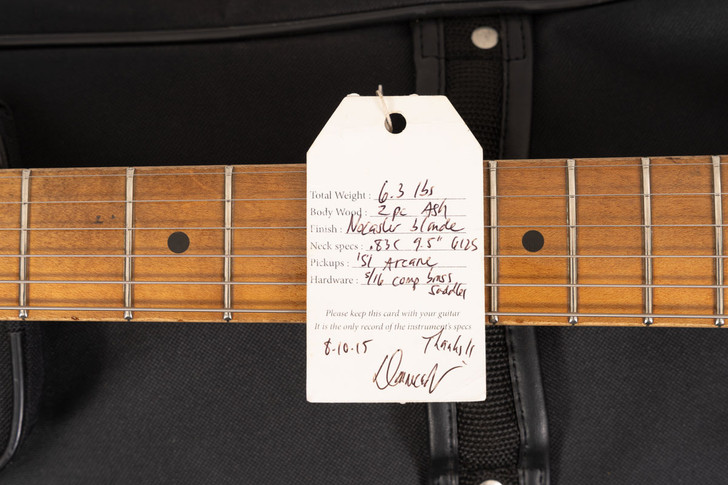 Total Weight : 6.3 lbs
Body Wood : 2 pc Ash
Finish : Nocaster blonde
Neck specs : .83C 9.5" 6125
Pickups : '51 Arcane
Hardware : 5/16 comp brass
saddles
Please keep this card with your guitar
It is the only record of the instrument's specs
8-10-15 Thanks!!